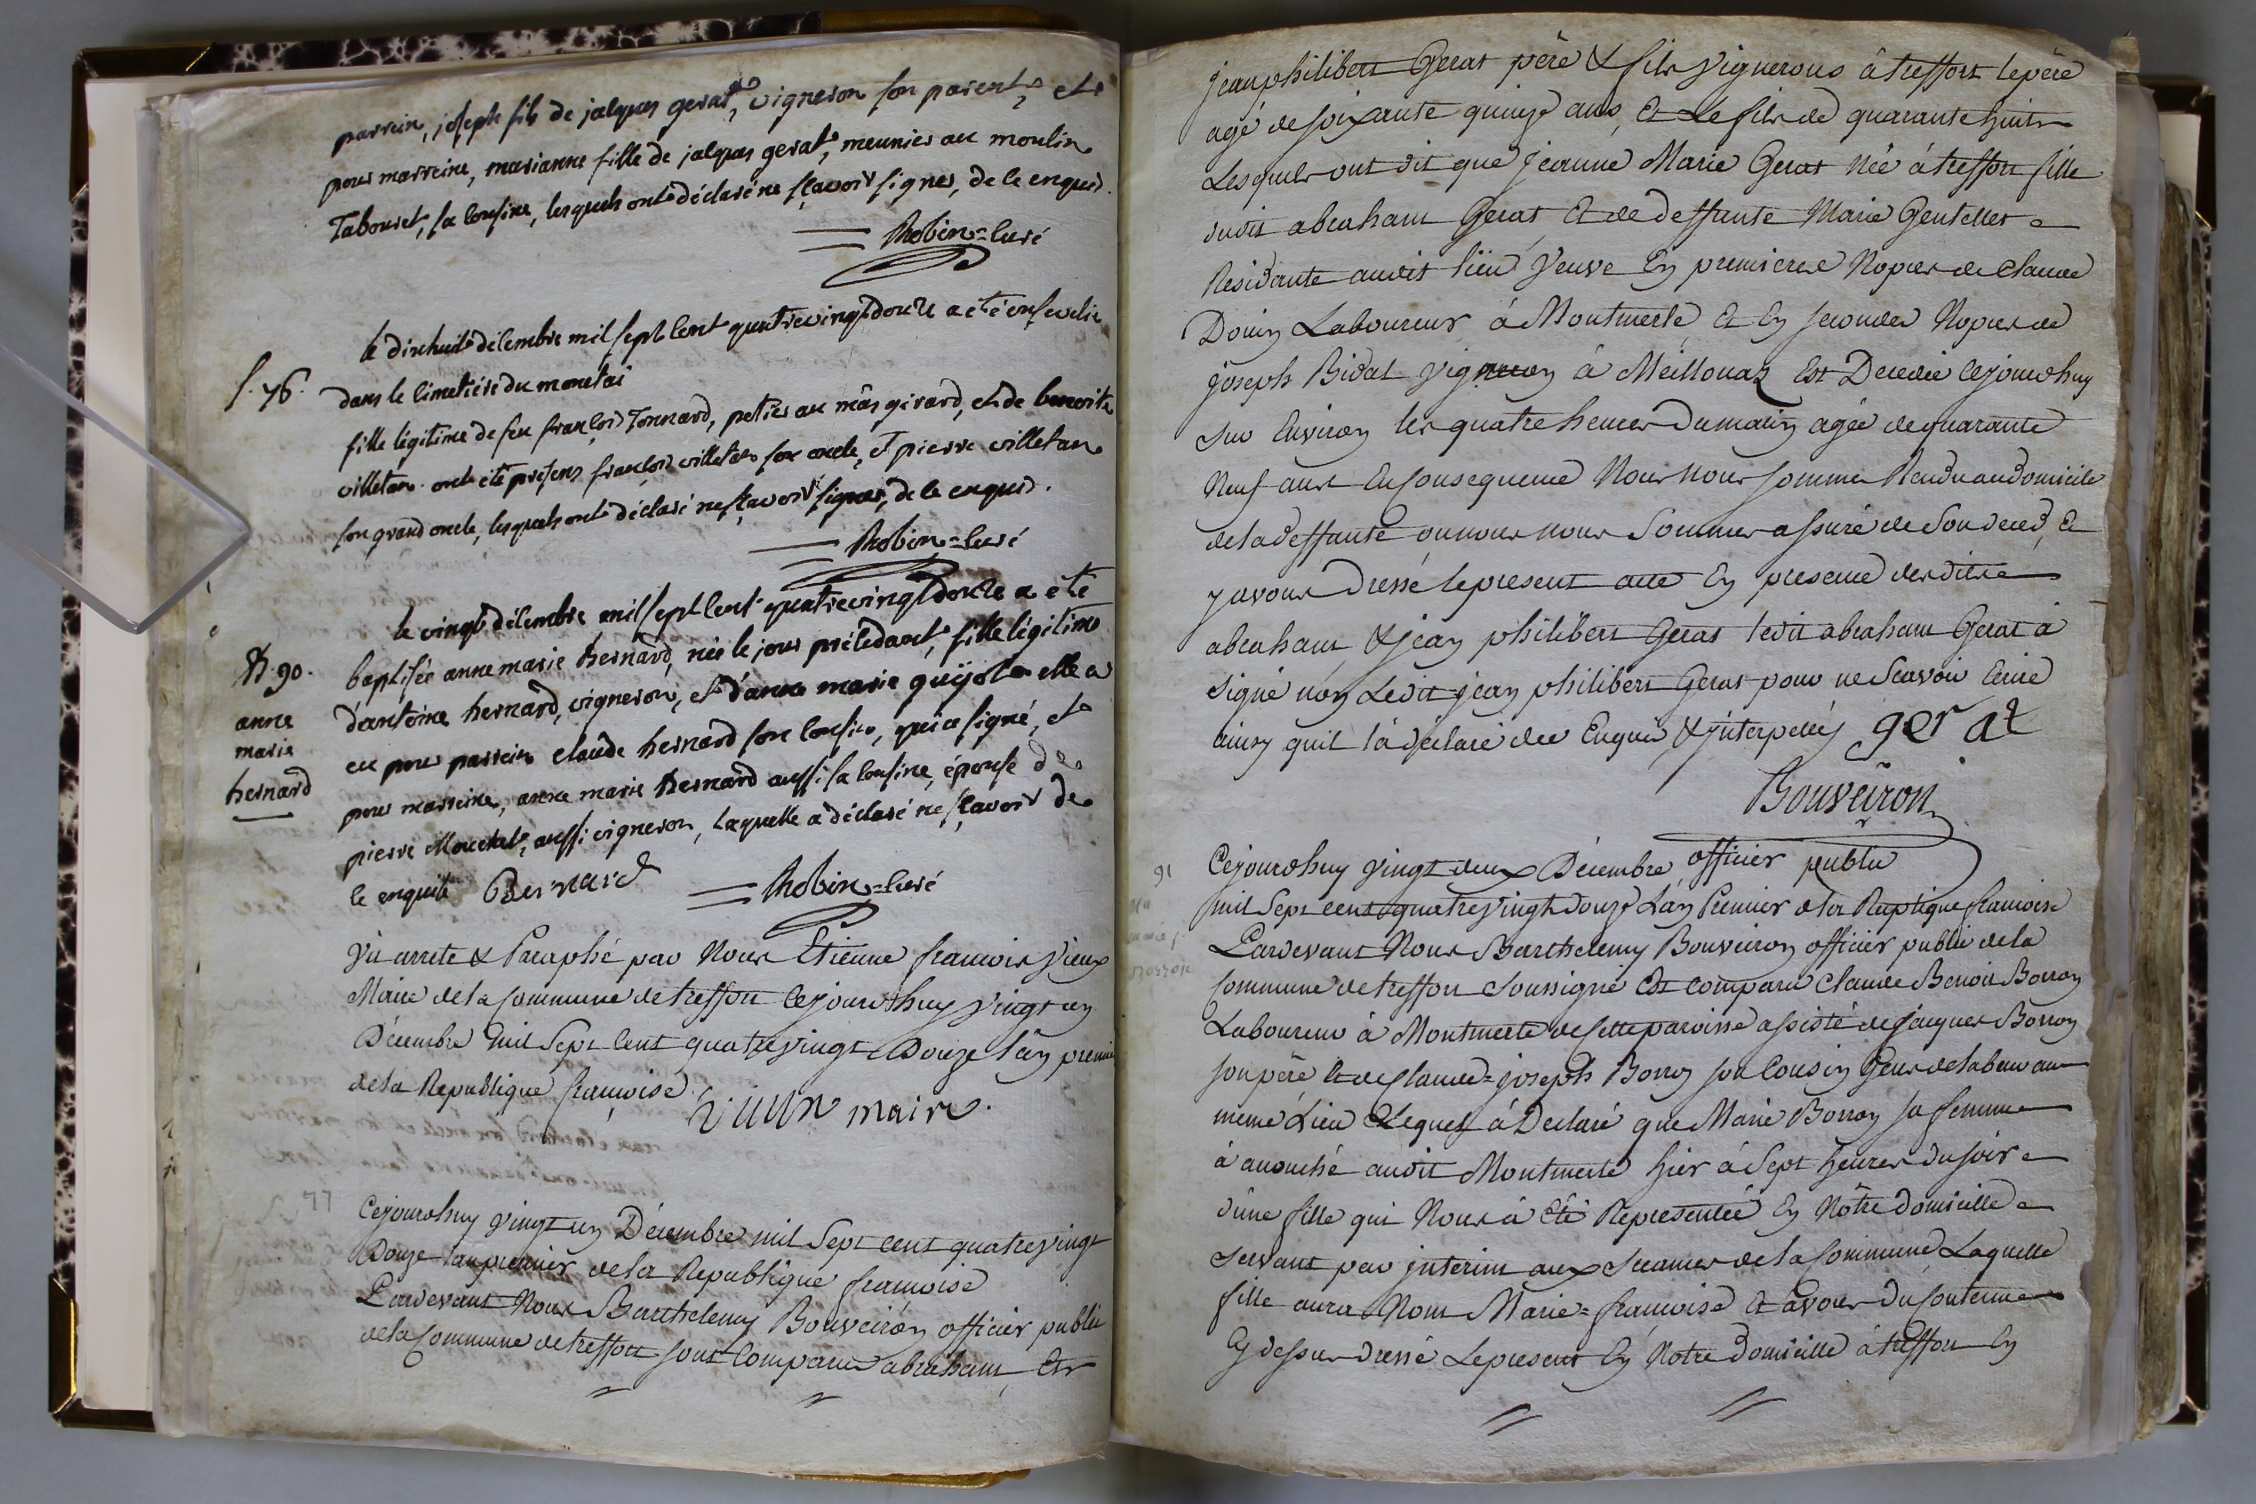 parrein, joseph fils de jalques gerat, vigneron son parent, et
pour marreine, marianne fille de jalques gerat, meunier au moulin
Tabouret, sa cousine, lesquels ont déclaré ne sçavoir signer, de ce enquis.
Robin=curé
le dixhuit décembre mil sept cent quatrevingtdouze a été ensevelie
s. 76. dans le cimetière du monetai
fille légitime de feu françois Tonnard, potier au mâs girard, et de benoite
villetan. ont été présens françois villetan son oncle, et pierre villetan
son grand oncle, lesquels ont déclaré ne sçavoir signer, de ce enquis.
Robin=curé
le vingt décembre mil sept cent quatrevingtdouze a été
B. 90. baptisée anne marie bernard, née le jour précédant, fille légitime
anne
marie
bernard
d'antoine bernard, vigneron, et d'anne marie guijot elle a
eu pour parrein claude bernard son cousin, qui a signé, et
pour marreine, anne marie bernard aussi sa cousine, épouse de
pierre Mouchet, aussi vigneron, laquelle a déclaré ne sçavoir de
ce enquise Bernard Robin=curé
Vu arrete & Paraphé par Nous Etienne francois Vieux
Maire de la Commune de treffort Cejourdhuy Vingt un
Décembre Mil Sept Cent quatrevingt Douze l'an premier
de la Republique françoise
Vieux maire.
77 Cejourdhuy Vingt un Décembre mil Sept cent quatrevingt
Douze l'an premier de la Republique francoise
Pardevant Nous Barthelemy Bouveiron officier public
de la Commune de treffort sont Comparus abraham et
jean philibert Gerat père & fils Vignerons à treffort le père
agé de soixante quinze ans, Et Le fils de quarante huit
Lesquels ont dit que Jeanne Marie Gerat Née à treffort fille
dudit abraham Gerat Et de deffunte Marie Gentellet
Residante audit lieu Veuve En premieres Nopces de Claude
Douin Laboureur à Montmerle, Et En secondes Nopces de
joseph Bidat Vigneron à Meillonaz Est Decedée Cejourdhuy
sur Environ les quatre heures du matin agée de quarante
Neuf ans En Consequence Nous nous sommes Rendu au domicile
de la deffunte ou nous nous Sommes assuré de Son deces, Et
y avons Dressé le present acte En presence desdits
abraham & jean philibert Gerat ledit abraham Gerat a
signé non Ledit jean philibert Gerat pour ne Scavoir Ecrire
ainsy quil l'a déclaré de ce Enquis & jnterpellé gerat
Bouveiron
officier public
91 Cejourdhuy Vingt deux Décembre
mil Sept cent quatrevingt douze L'an Premier de la Republique francoise
Pardevant Nous Barthelemy Bouveiron officier public de la
Commune de treffort Soussigné Est comparu Claude Benoit Borron
Laboureur à Montmerle de cette paroisse assisté de Jacques Borron
son père Et de Claude=joseph Borron son Cousin Gens de labeur au
meme Lieu Lequel à Declaré que Marie Borron sa femme
à acouché audit Montmerle hier à Sept heures du soir
d'une fille qui Nous à été Representée En Nôtre domicille
servant par interim aux seances de la Commune Laquelle
fille aura Nom Marie=francoise Et avons du Contenu
Cy dessus dressé Le present En Notre domicille à treffort En